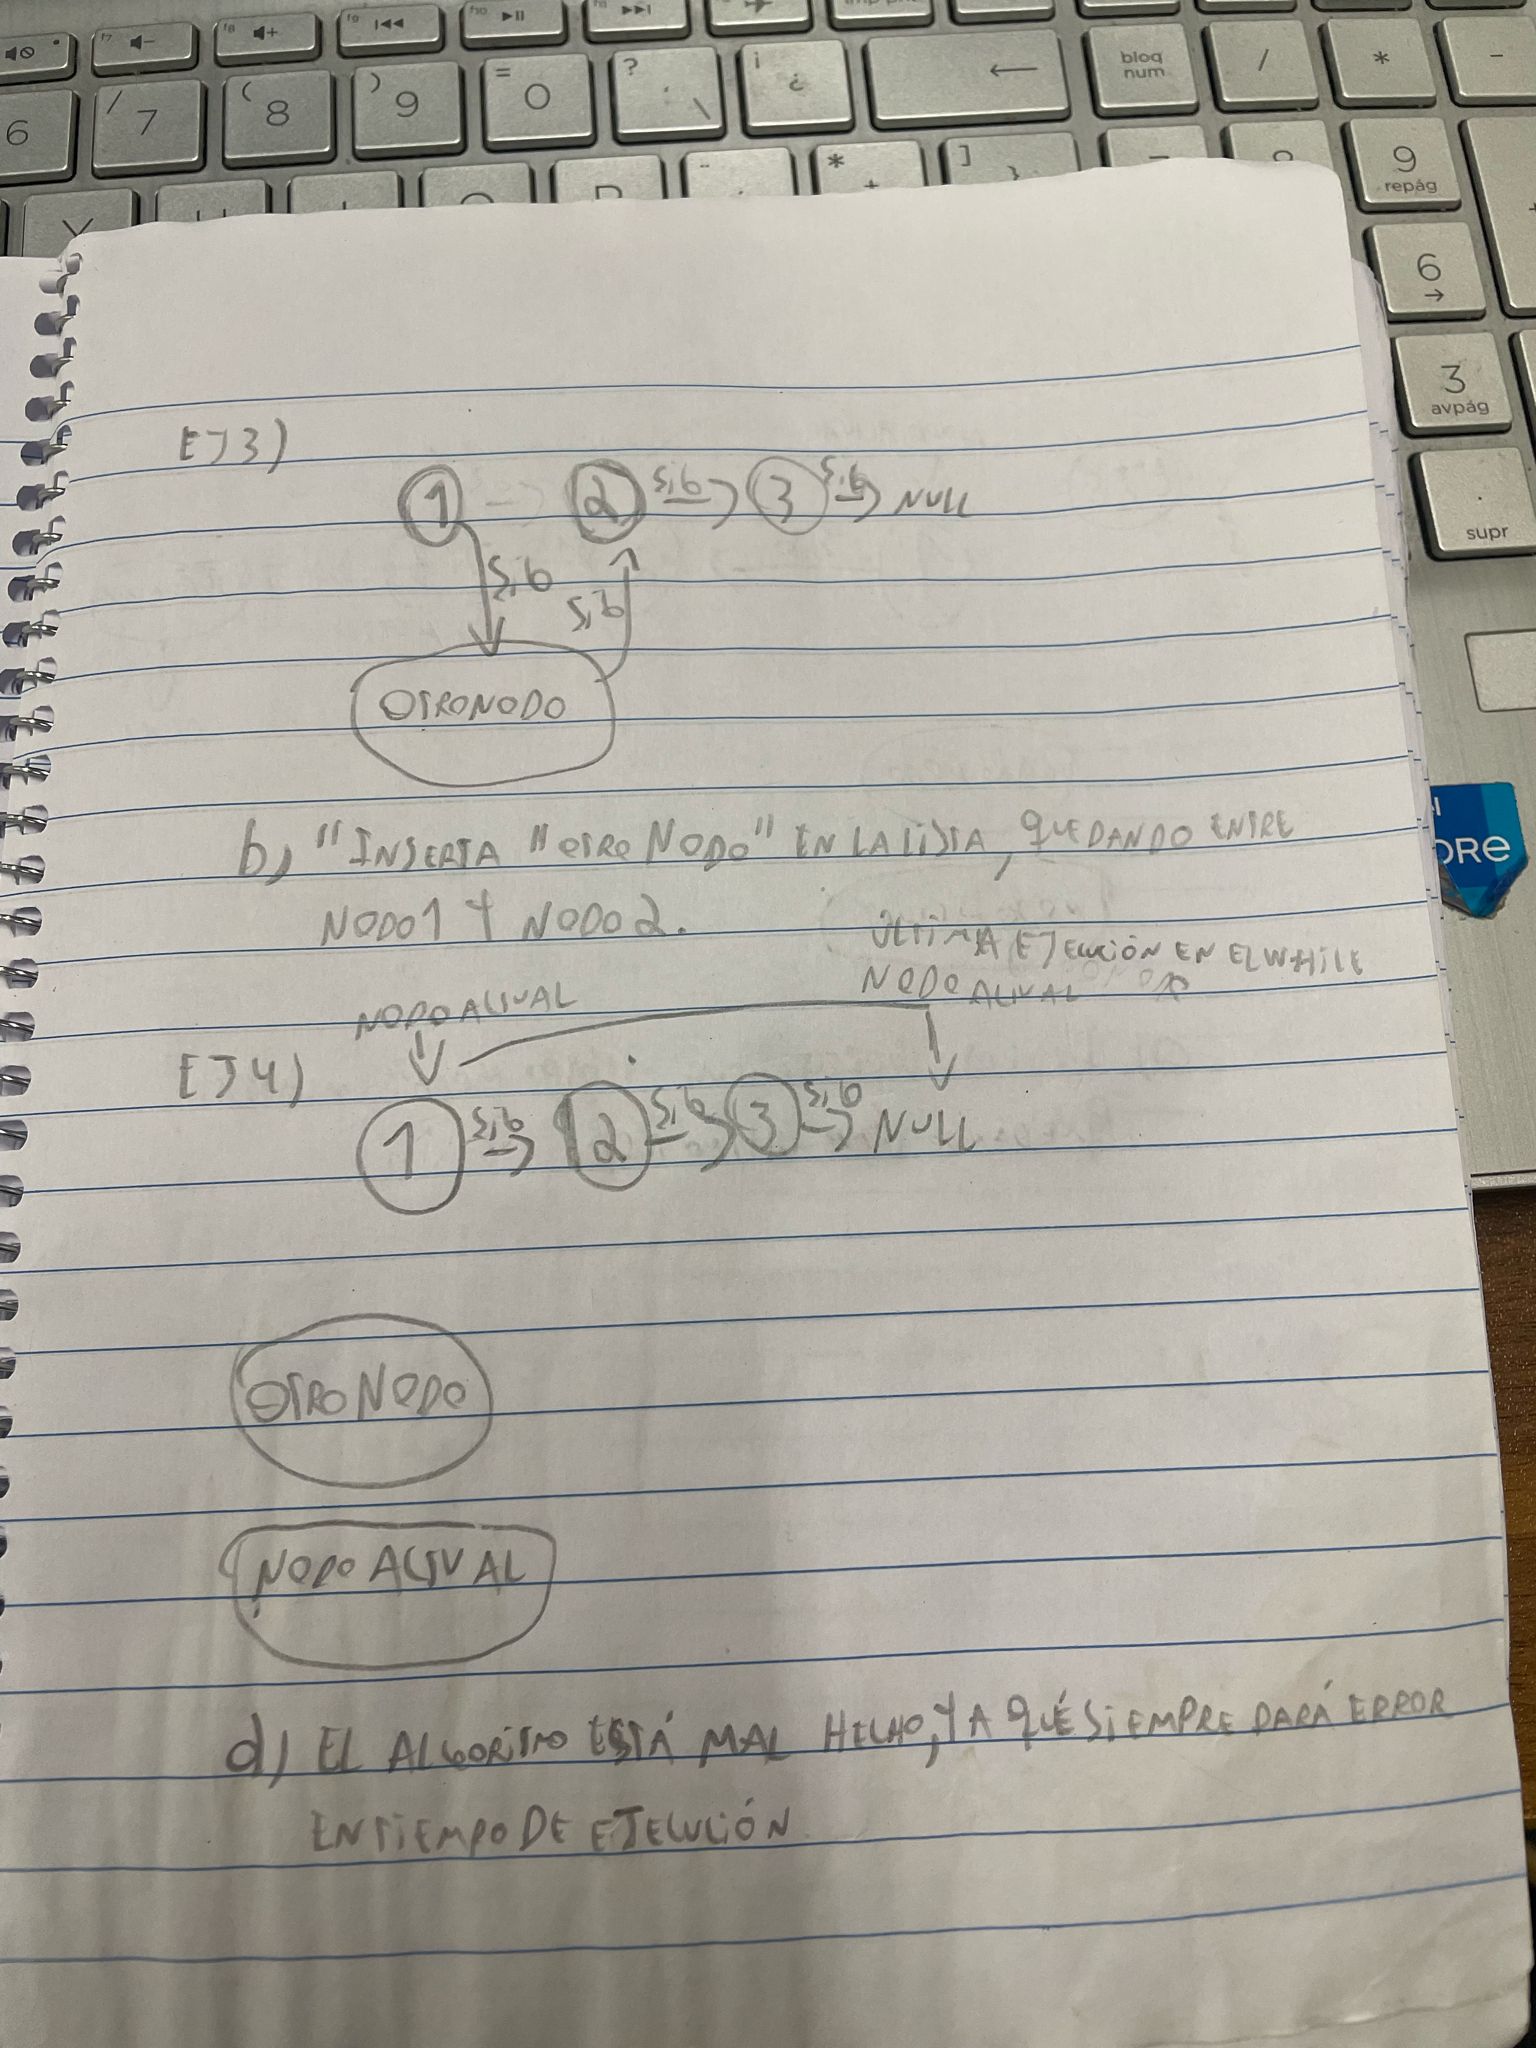 f7
f8
f9
f10
6
/ 7
( 8
) 9
= 0
? ' \
¡ ¿
←
bloq num
/
*
-
* +
] }
9 repág
6 →
3 avpág
. supr
EJ3)
1 → 2 sig → 3 sig → NULL
sig
sig
OTRONODO
b) "INSERTA "OTRO NODO" EN LA LISTA, QUEDANDO ENTRE
NODO1 Y NODO2.
ULTIMA EJECUCIÓN EN EL WHILE
NODO ACTUAL
NODO ACTUAL
EJ4)
1 sig → 2 sig → 3 sig → NULL
OTRO NODO
NODO ACTUAL
d) EL ALGORITMO ESTÁ MAL HECHO, YA QUÉ SIEMPRE DARÁ ERROR
EN TIEMPO DE EJECUCIÓN
ORE